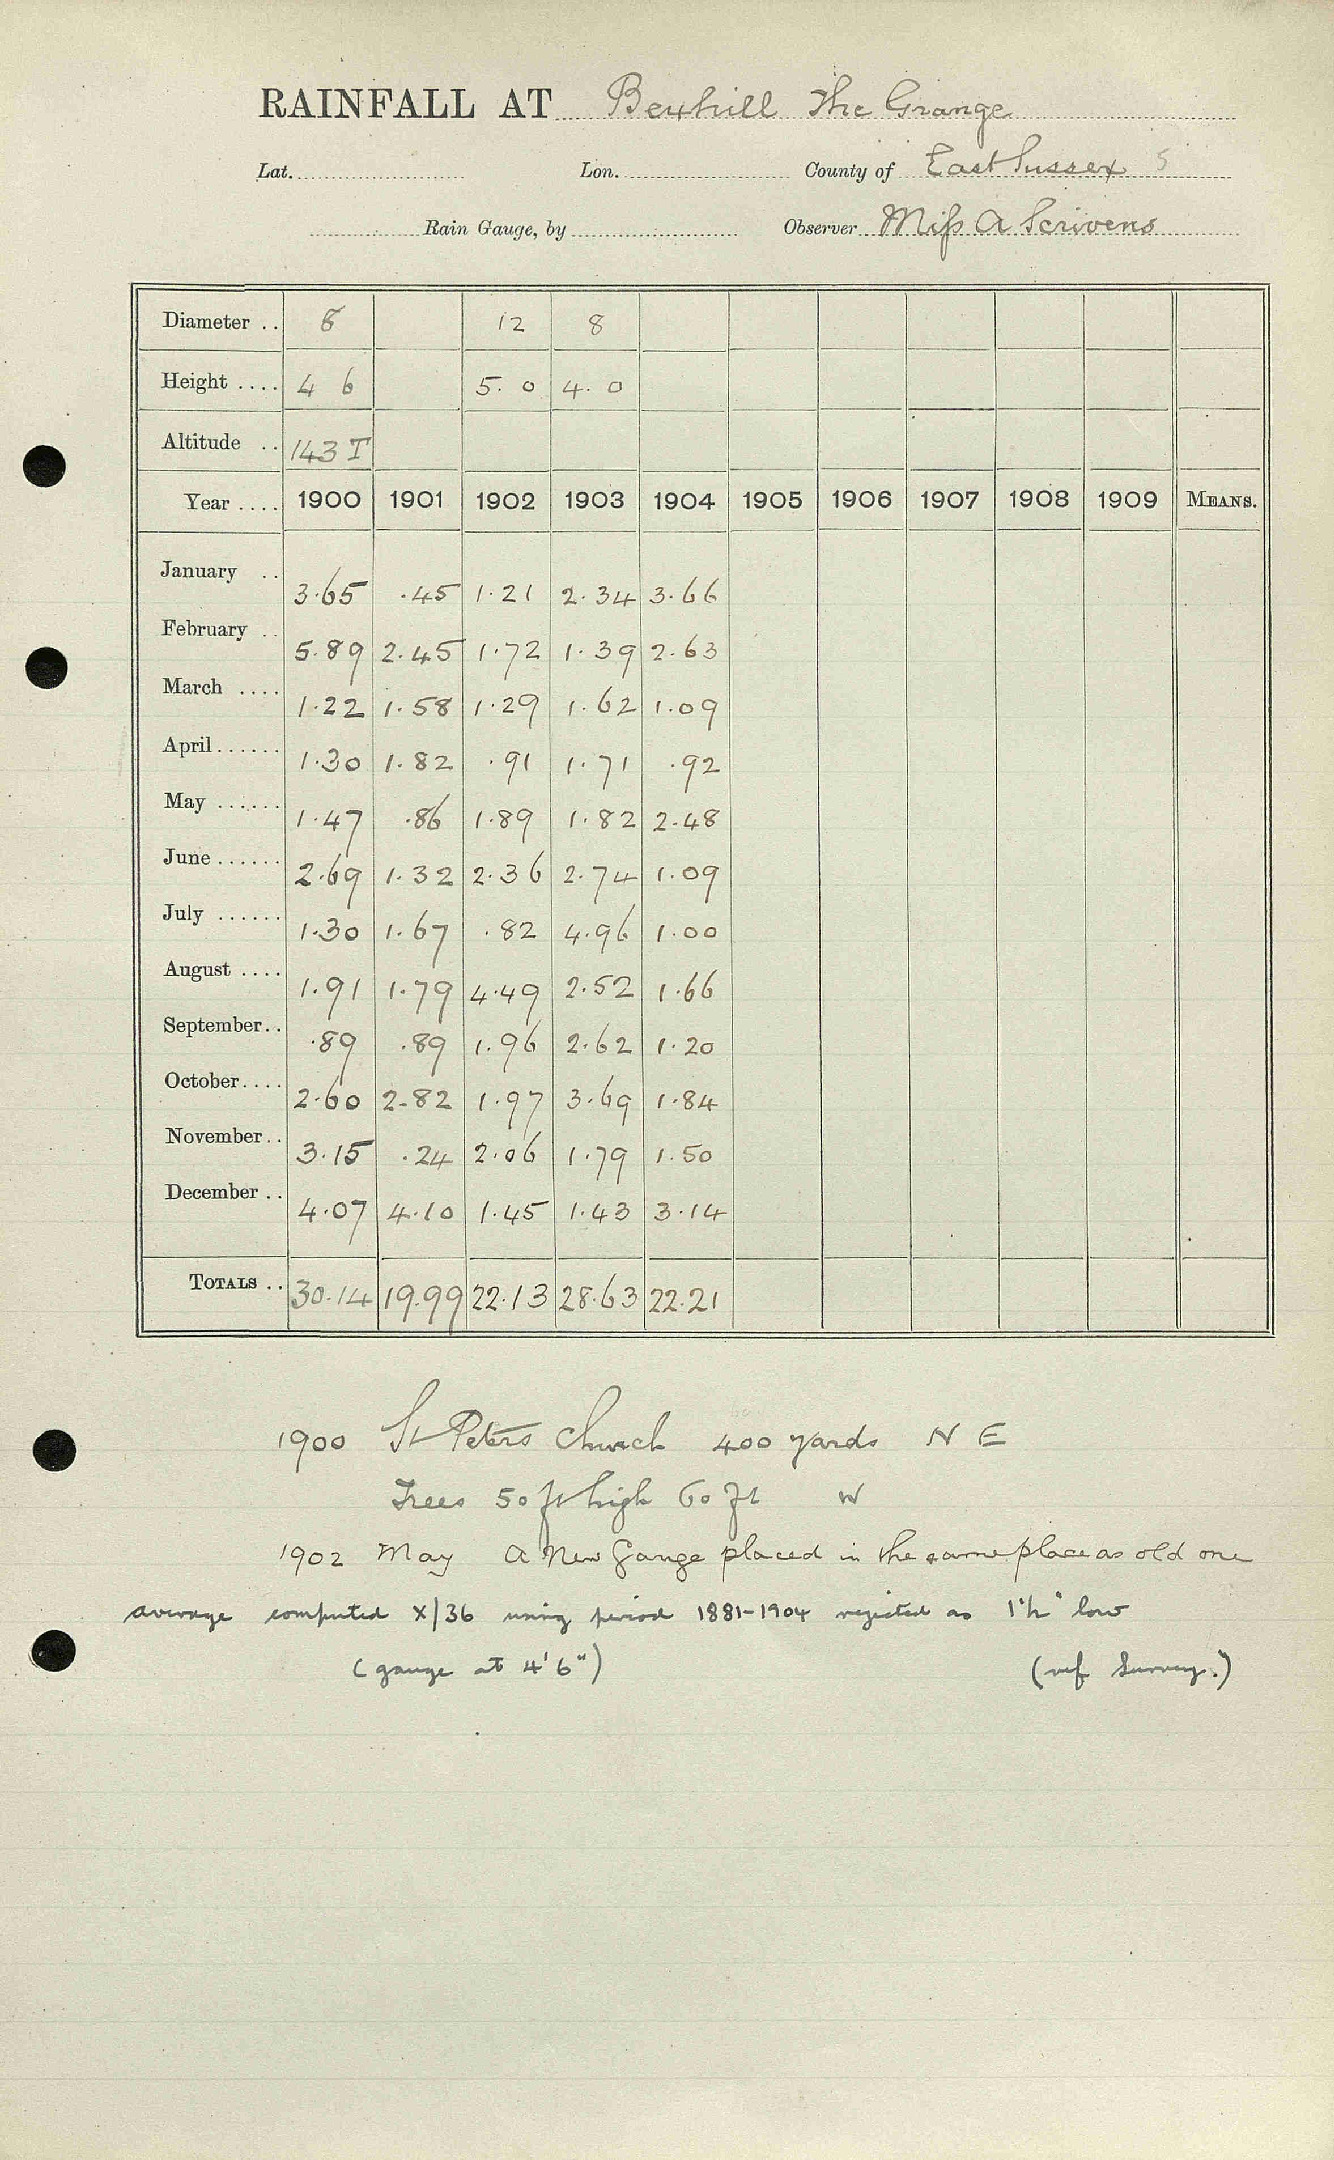 RAINFALL AT Bexhill The Grange
Lat. Lon. County of East Sussex 5
Rain Gauge, by Observer Miss A Scrivens
Diameter .. 8 12 8
Height .... 4 6 5. 0 4. 0
Altitude .. 143 T
Year .... 1900 1901 1902 1903 1904 1905 1906 1907 1908 1909 MEANS.
January .. 3.65 .45 1.21 2.34 3.66
February .. 5.89 2.45 1.72 1.39 2.63
March .... 1.22 1.58 1.29 1.62 1.09
April ...... 1.30 1.82 .91 1.71 .92
May ...... 1.47 .86 1.89 1.82 2.48
June ...... 2.69 1.32 2.36 2.74 1.09
July ...... 1.30 1.67 .82 4.96 1.00
August .... 1.91 1.79 4.49 2.52 1.66
September .. .89 .89 1.96 2.62 1.20
October .... 2.60 2.82 1.97 3.69 1.84
November .. 3.15 .24 2.06 1.79 1.50
December .. 4.07 4.10 1.45 1.43 3.14
TOTALS .. 30.14 19.99 22.13 28.63 22.21
1900 St Peters Church 400 yards N E
Trees 50 ft high 60 ft W
1902 May A New Gauge placed in the same place as old one
average computed X/36 using period 1881-1904 rejected as 1"½" low
(gauge at 4'6") (ref Survey.)